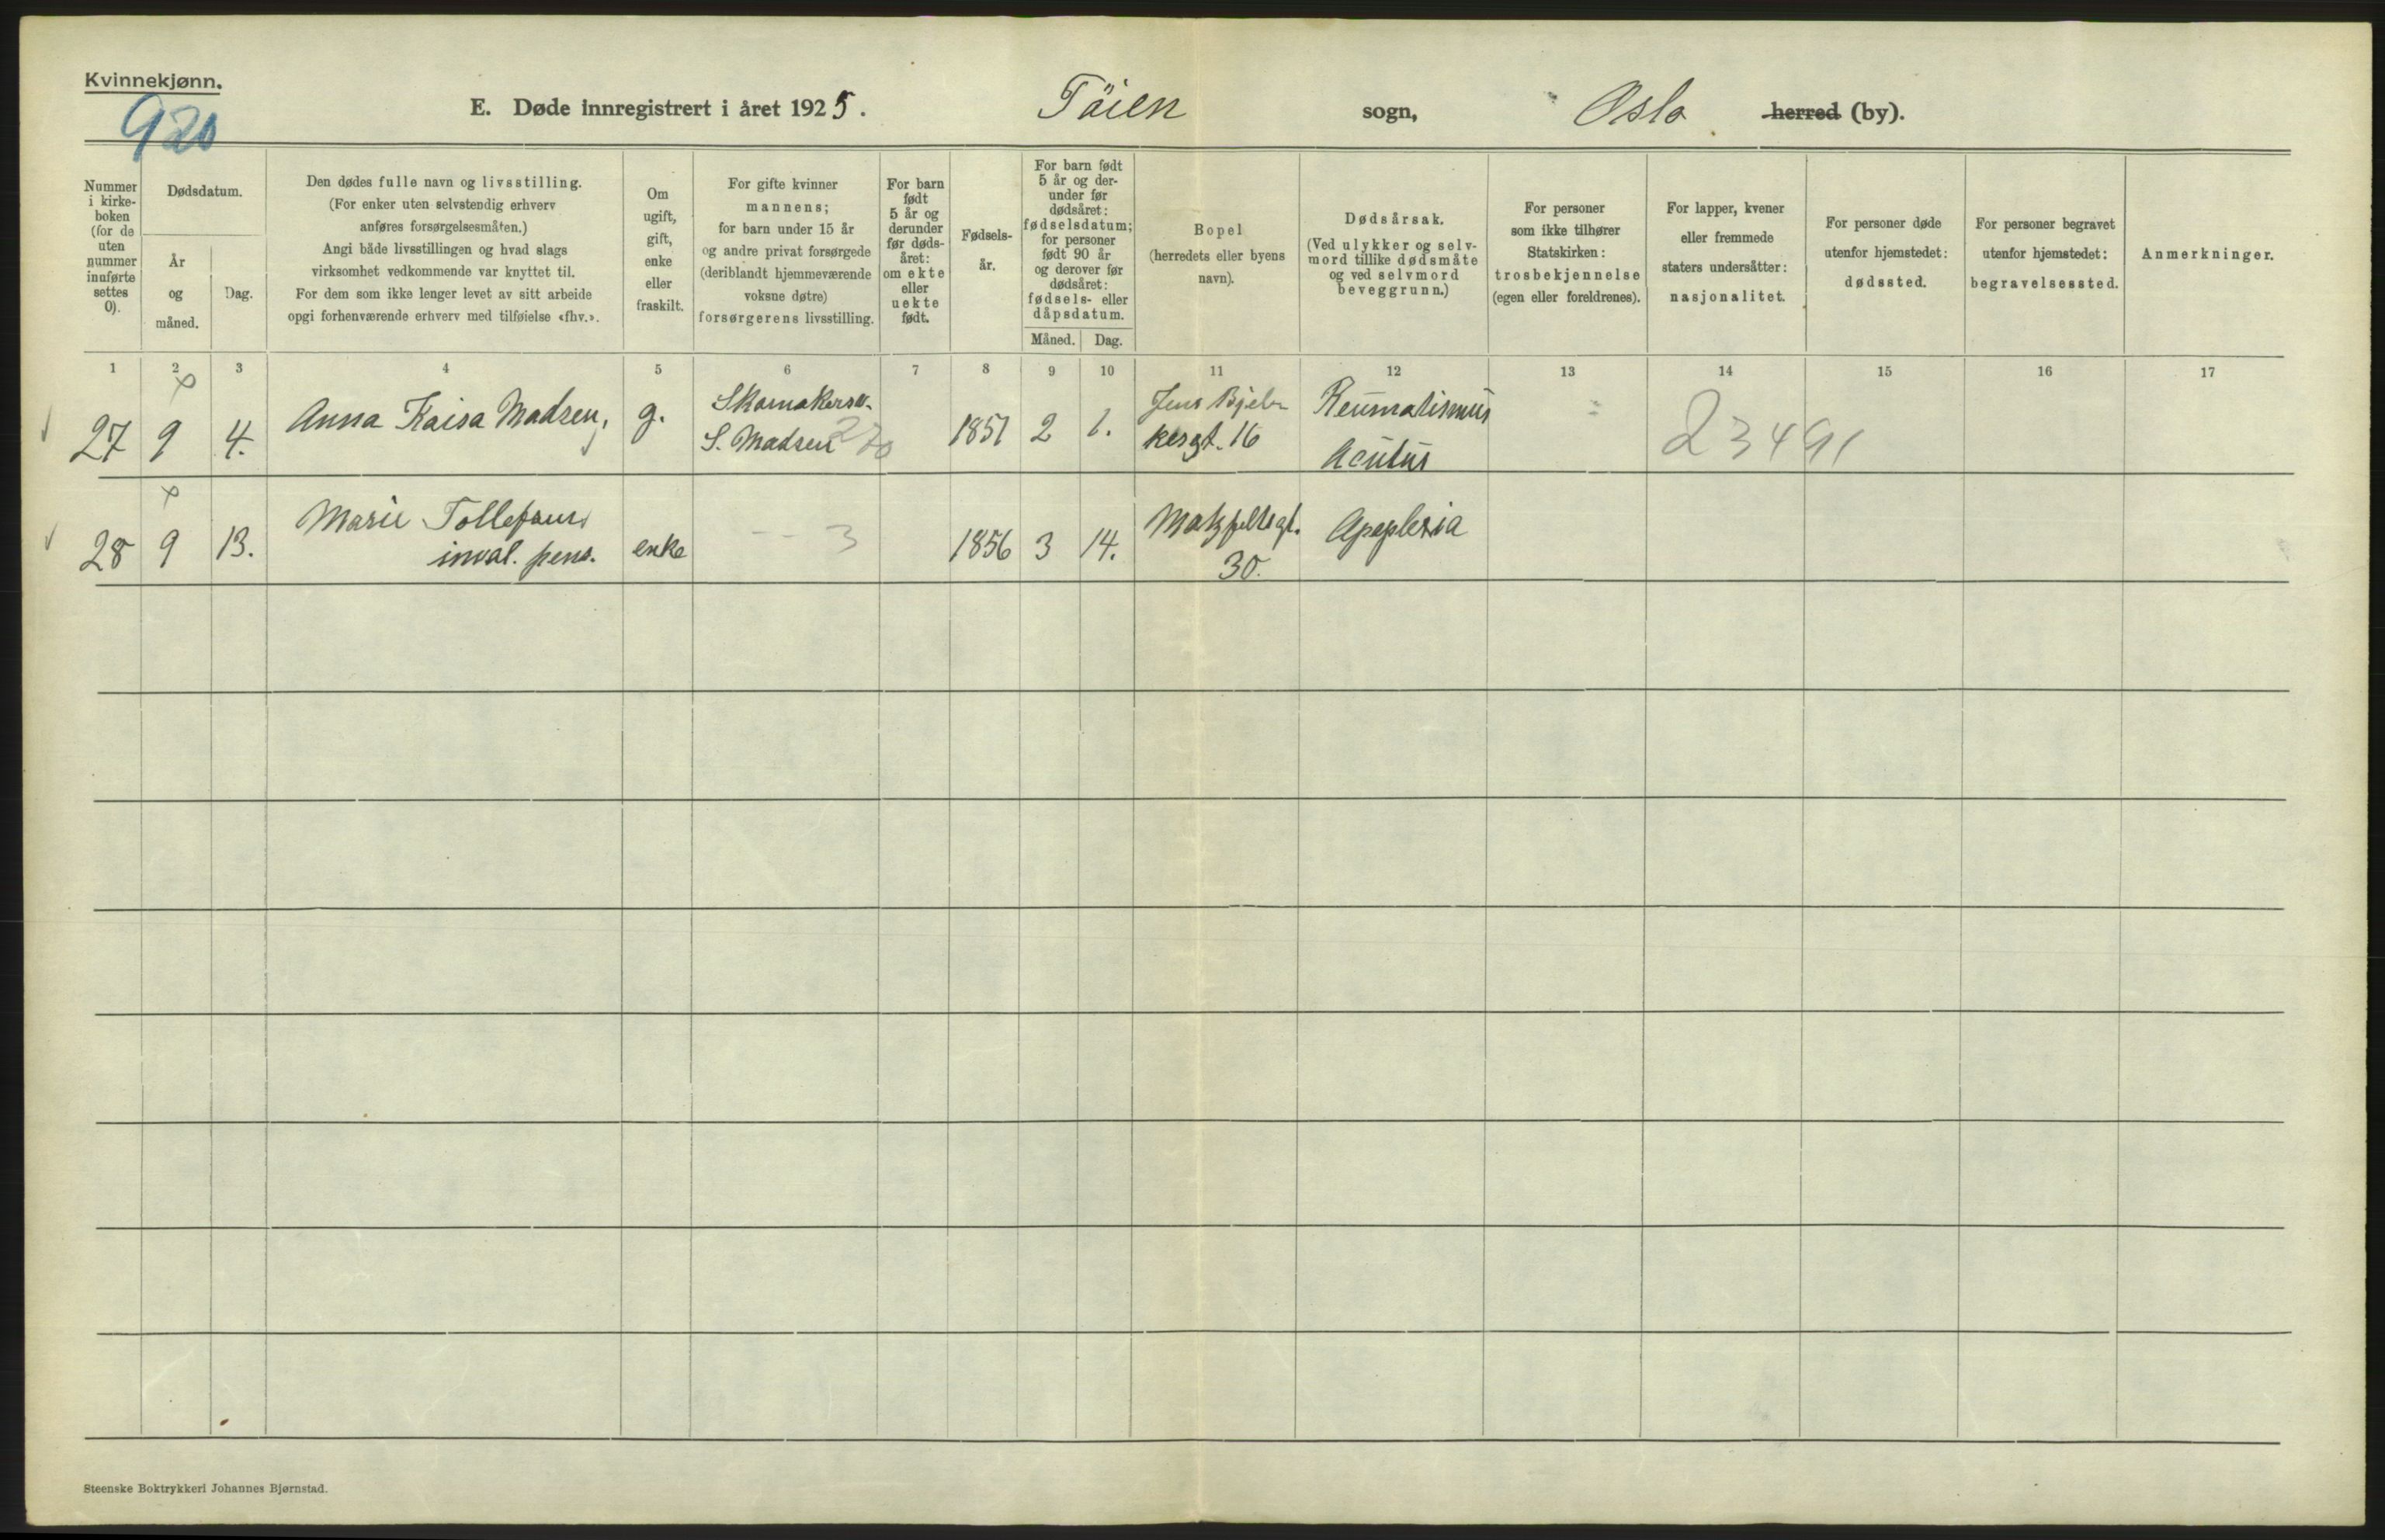 Kvinnekjønn.
920
E. Døde innregistrert i året 1925.
Töien sogn, Oslo herred (by).
Nummer
i kirke-
boken
(for de
uten
nummer
innførte
settes
0).
Dødsdatum.
År
og
måned.
Dag.
Den dødes fulle navn og livsstilling.
(For enker uten selvstendig erhverv
anføres forsørgelsesmåten.)
Angi både livsstillingen og hvad slags
virksomhet vedkommende var knyttet til.
For dem som ikke lenger levet av sitt arbeide
opgi forhenværende erhverv med tilføielse «fhv.».
Om
ugift,
gift,
enke
eller
fraskilt.
For gifte kvinner
mannens;
for barn under 15 år
og andre privat forsørgede
(deriblandt hjemmeværende
voksne døtre)
forsørgerens livsstilling.
For barn
født
5 år og
derunder
før døds-
året:
om ekte
eller
uekte
født.
Fødsels-
år.
For barn født
5 år og der-
under før
dødsåret:
fødselsdatum;
for personer
født 90 år
og derover før
dødsåret:
fødsels- eller
dåpsdatum.
Måned. Dag.
Bopel
(herredets eller byens
navn).
Dødsårsak.
(Ved ulykker og selv-
mord tillike dødsmåte
og ved selvmord
beveggrunn.)
For personer
som ikke tilhører
Statskirken:
trosbekjennelse
(egen eller foreldrenes).
For lapper, kvener
eller fremmede
staters undersåtter:
nasjonalitet.
For personer døde
utenfor hjemstedet:
dødssted.
For personer begravet
utenfor hjemstedet:
begravelsessted.
Anmerkninger.
1 2 3 4 5 6 7 8 9 10 11 12 13 14 15 16 17
27 9 4. Anna Kaisa Madsen, g.
S. Madsen 1851 2 1.
kesgt. 16
Reumatismus
Acutus
23491
28 9 13. Marie
inval. pens.
enke 3 1856 3 14.
30.
Apoplexia
Steenske Boktrykkeri Johannes Bjørnstad.